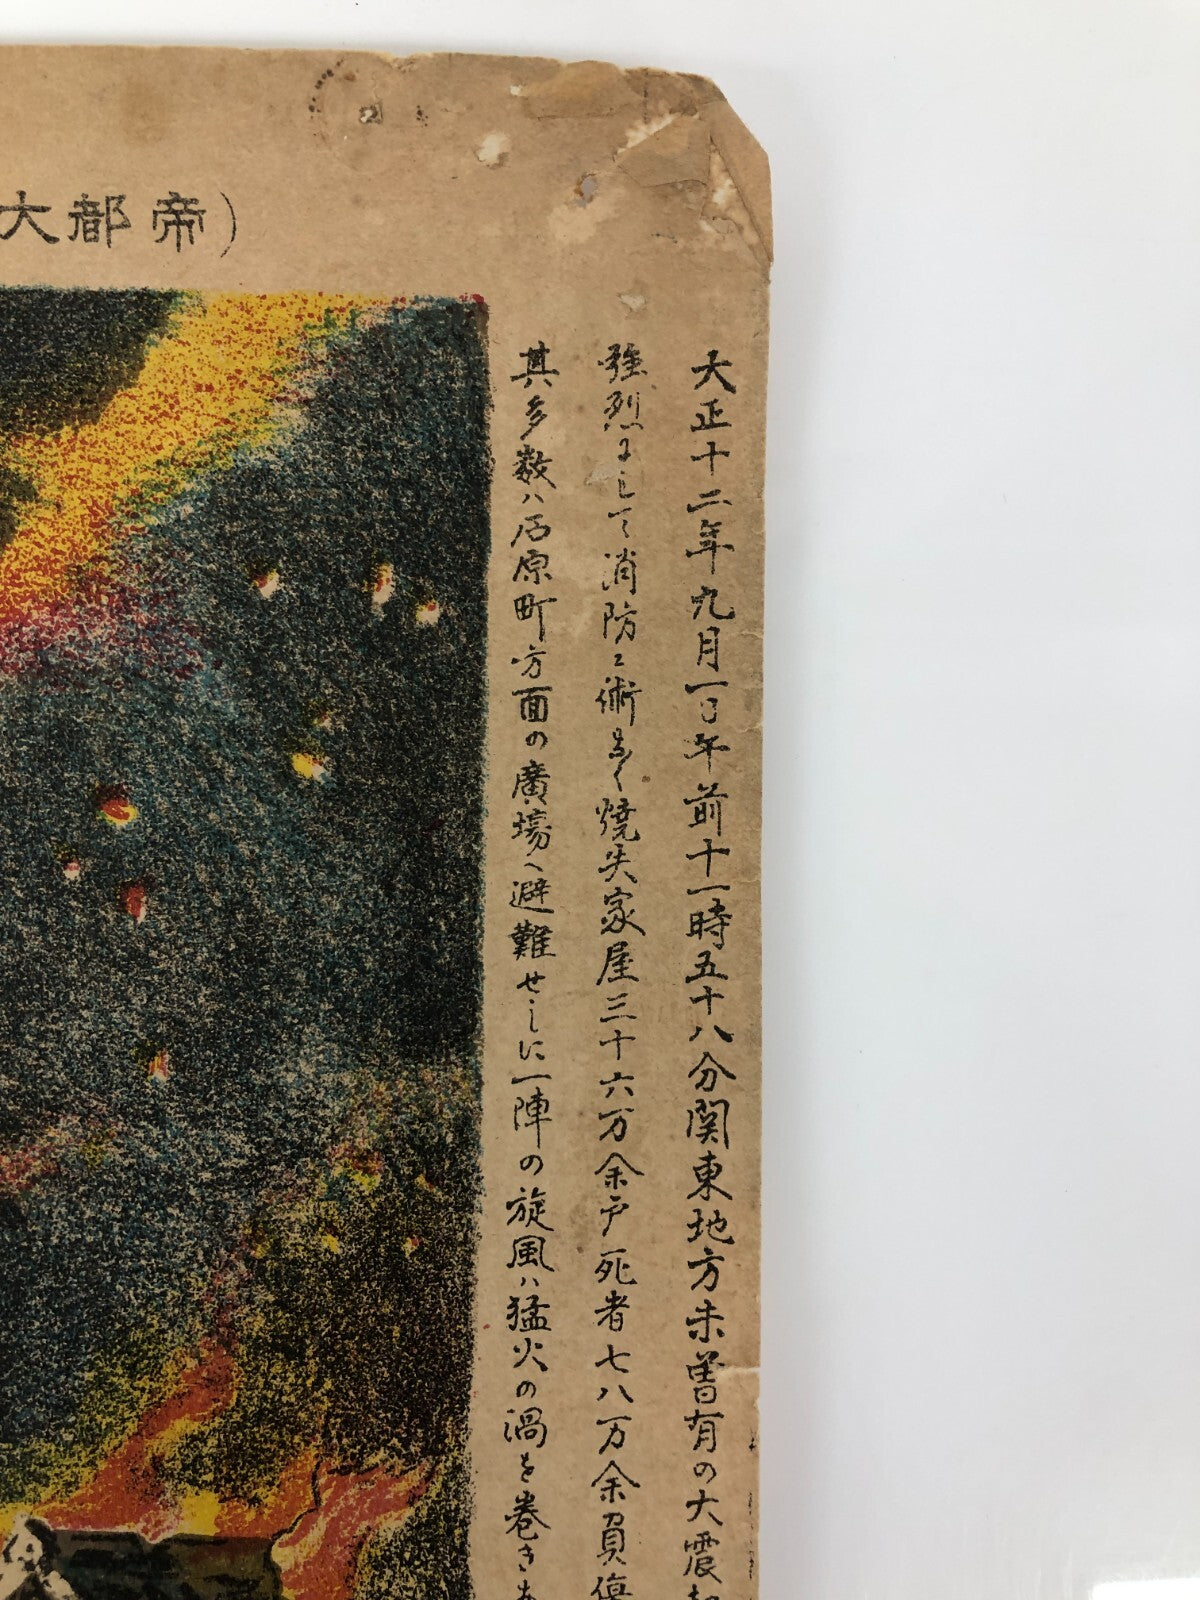 (帝都大
大正十二年九月一日午前十一時五十八分関東地方未曽有の大震
強烈にして消防に術なく焼失家屋三十六万余戸死者七八万余負傷
其多数ハ石原町方面の廣場へ避難せしに一陣の旋風ハ猛火の渦を巻き